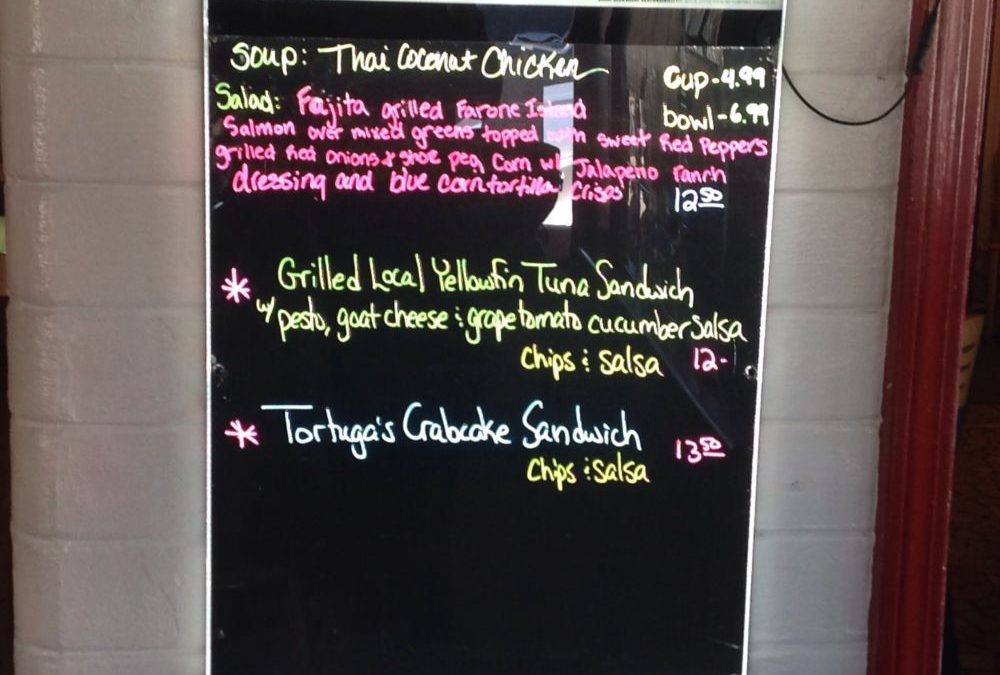 Soup: Thai Coconut Chicken
Cup-4.99
bowl-6.99
Salad: Fajita grilled Farone Island
Salmon over mixed greens topped with sweet Red Peppers
grilled Red onions & shoe peg Corn w/ Jalapeno ranch
dressing and blue corn tortilla Crisps 12 50
* Grilled Local Yellowfin Tuna Sandwich
w/ pesto, goat cheese & grape tomato cucumber Salsa
Chips & Salsa 12-
* Tortuga's Crabcake Sandwich 13 50
Chips & Salsa